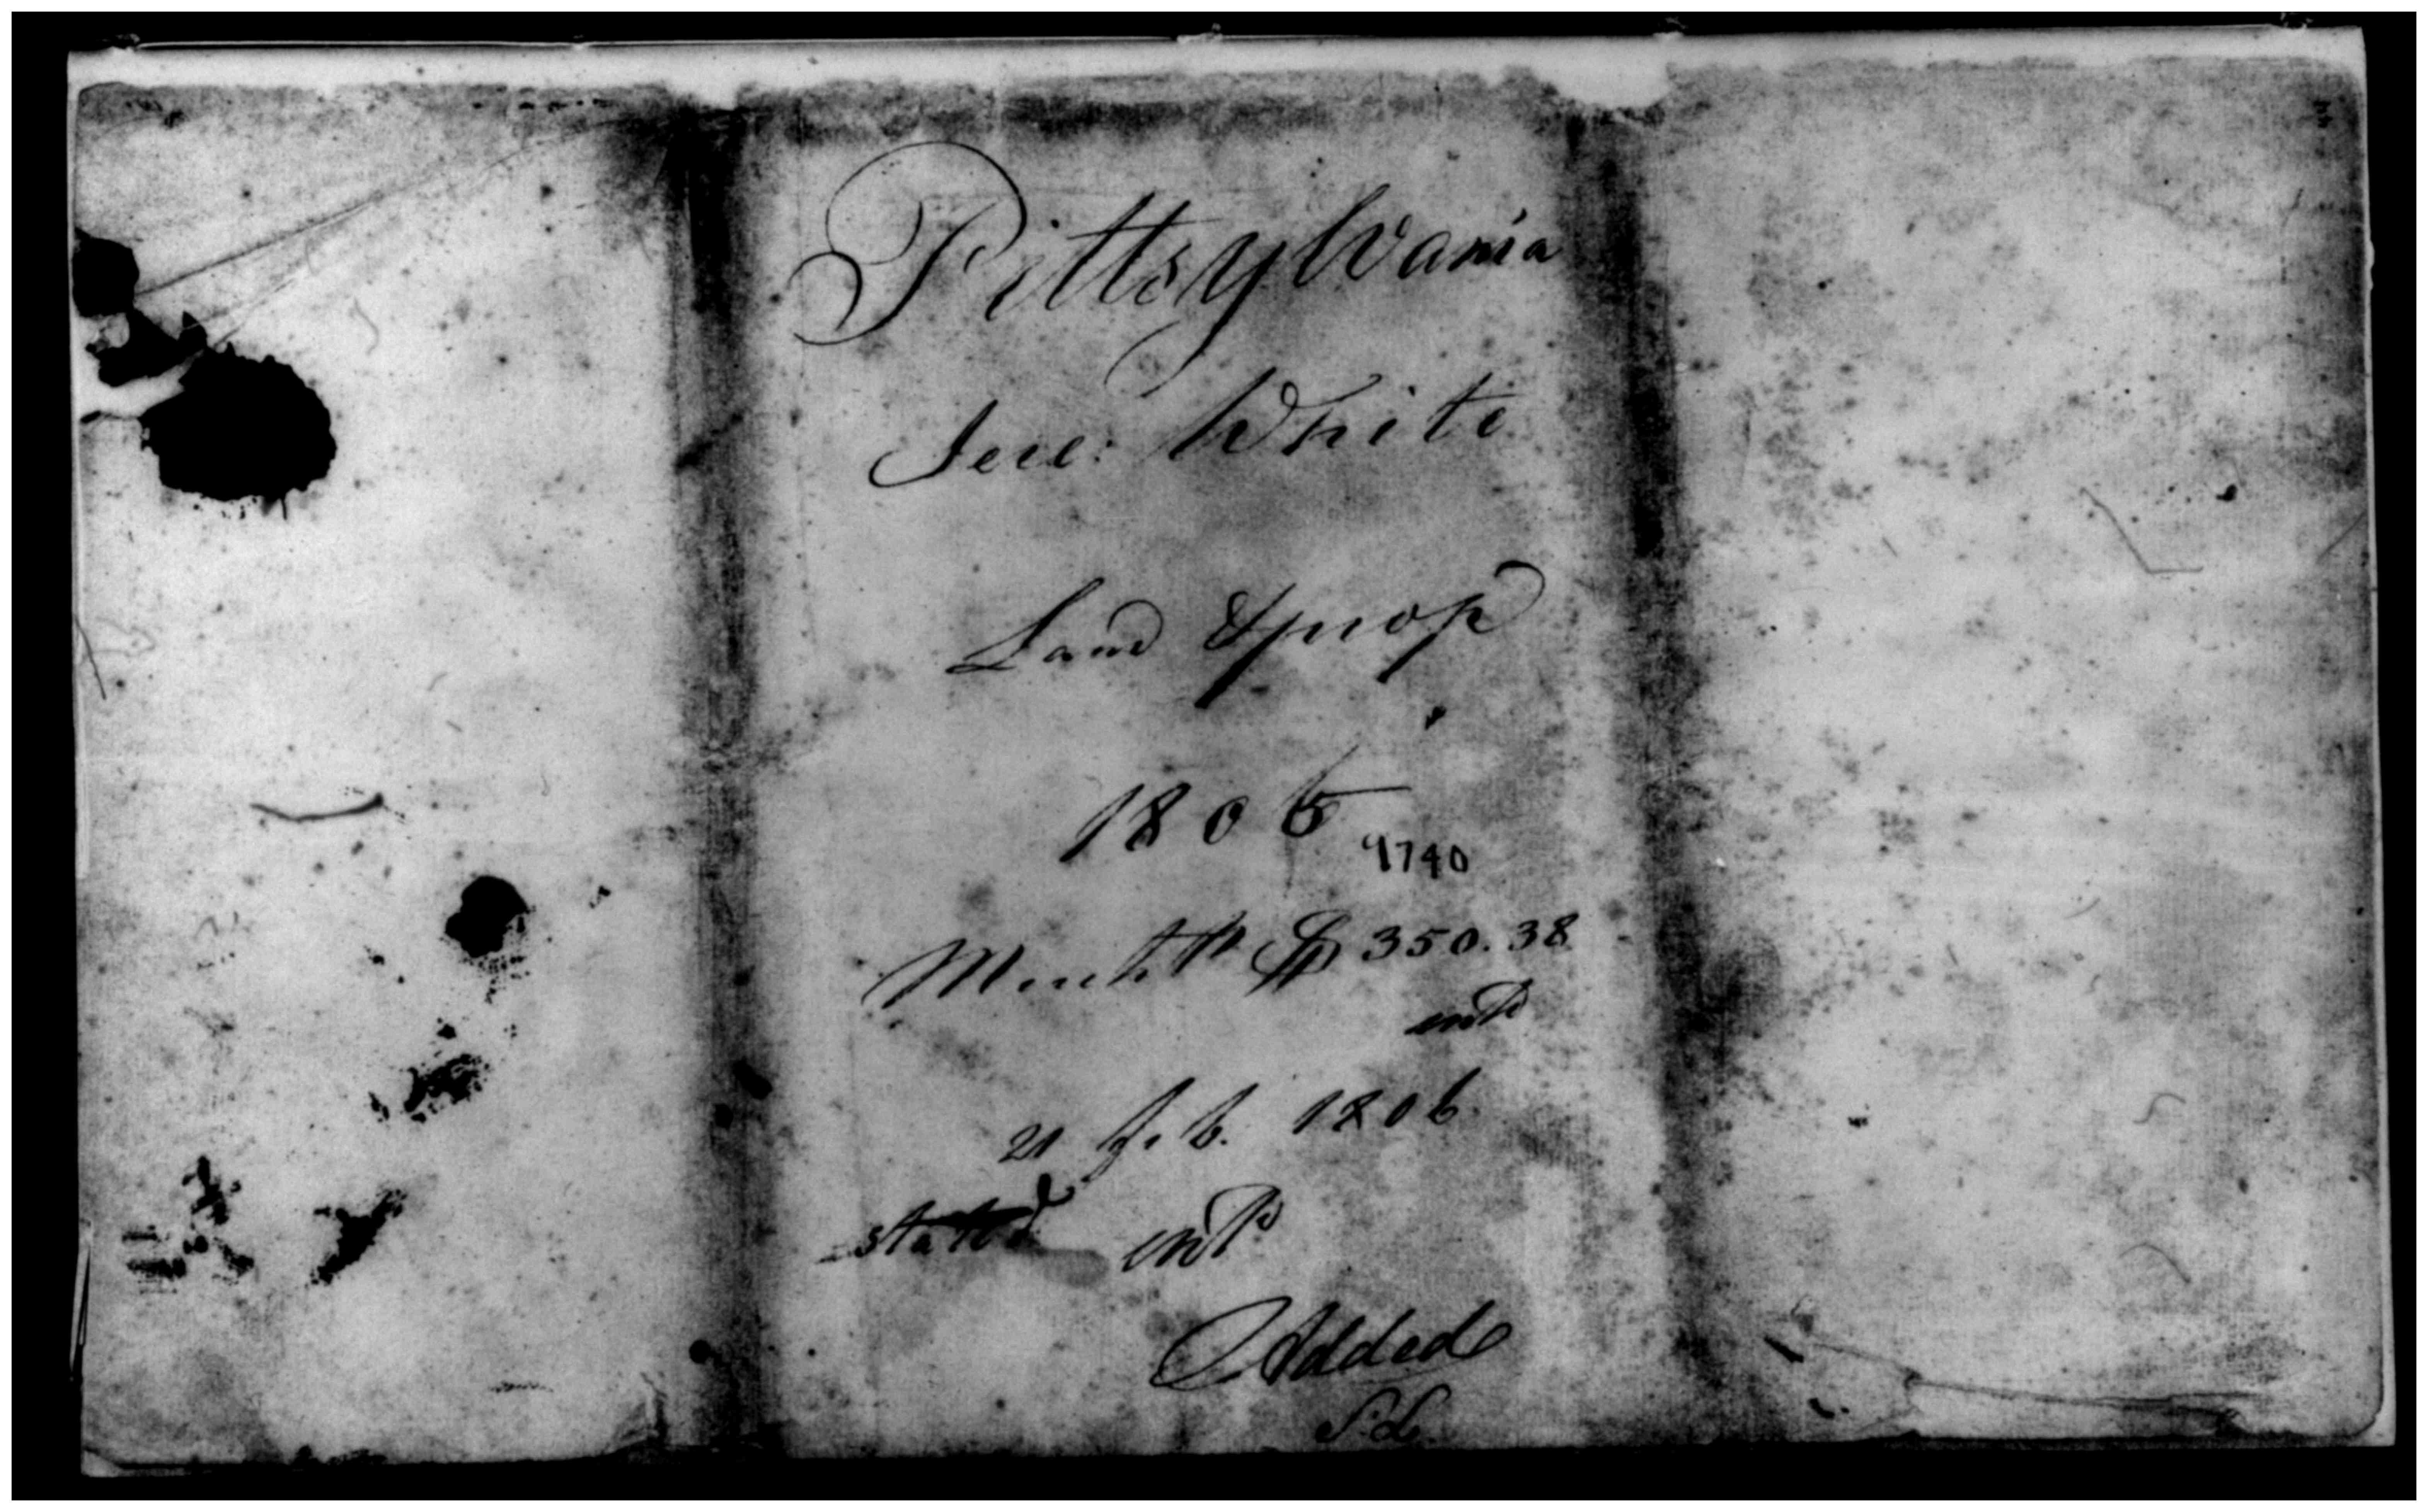 Pittsylvania
Jere: White
Land & prop
1805
9740
$350.38
entd
21 feb. 1806.
stated entd
Added
S.L.